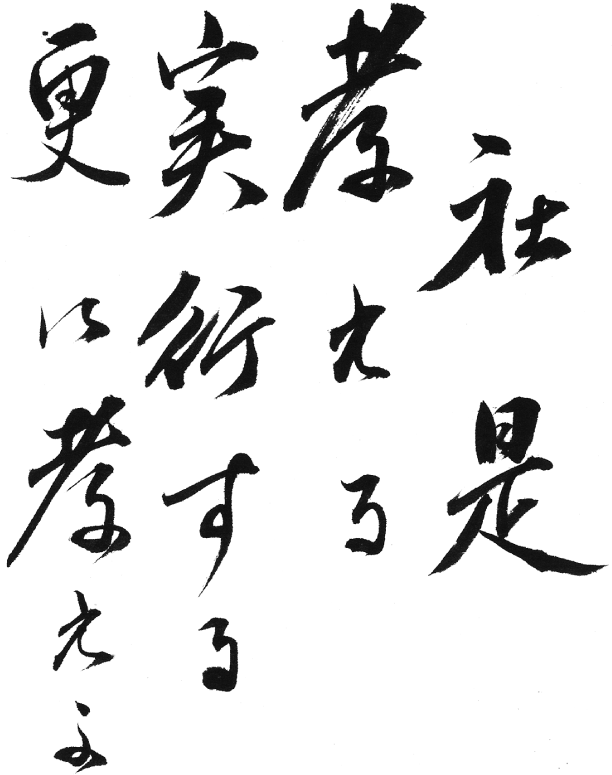 社是
考える
実行する
更に考える